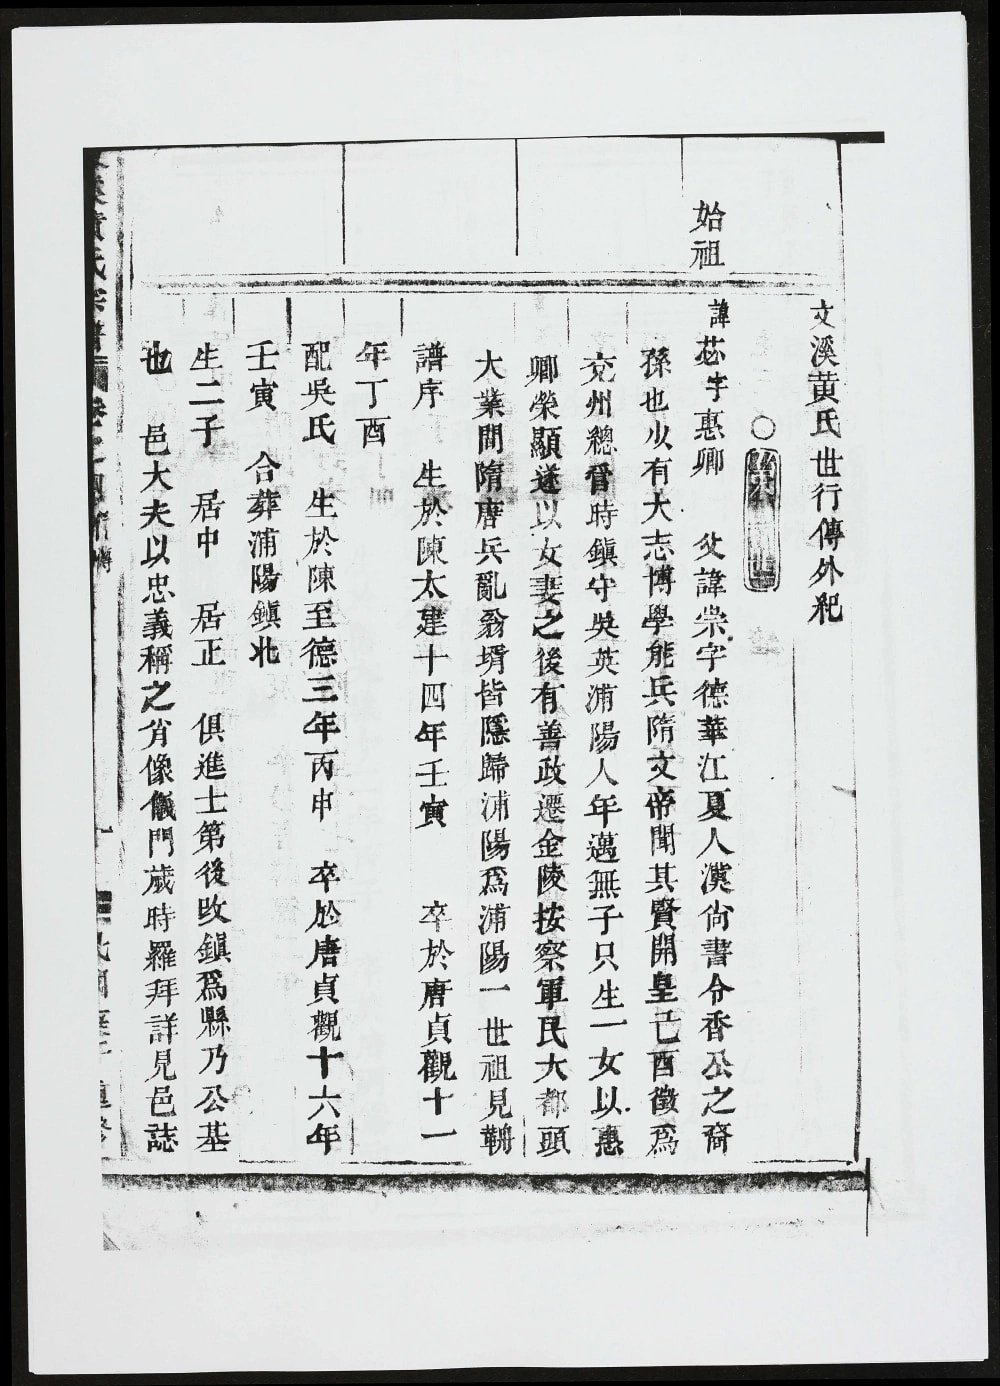 文溪黄氏世行傳外紀
始祖
諱苾字惠卿 父諱崇字德華江夏人漢尚書令香公之裔
孫也少有大志博學能兵隋文帝聞其賢開皇己酉徵爲
交州總管時鎮守吳英浦陽人年邁無子只生一女以惠
卿榮顯遂以女妻之後有善政遷金陵按察軍民大都頭
大業間隋唐兵亂翁壻皆隱歸浦陽爲浦陽一世祖見鞆
譜序 生於陳太建十四年壬寅 卒於唐貞觀十一
年丁酉
配吳氏 生於陳至德三年丙申 卒於唐貞觀十六年
壬寅 合葬浦陽鎮北
生二子 居中 居正 俱進士第後改鎮爲縣乃公基
也 邑大夫以忠義稱之肖像儀門歲時羅拜詳見邑誌
黃氏宗譜 卷之